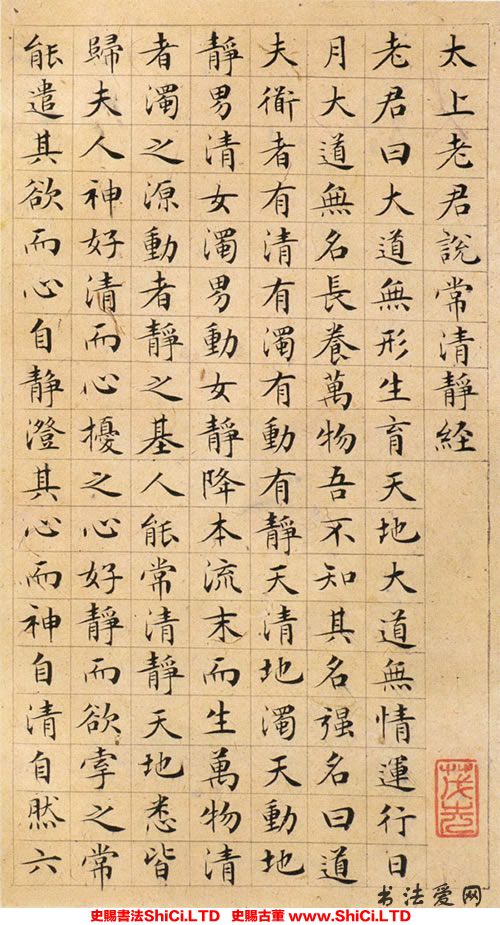 太上老君說常清靜経
老君曰大道無形生育天地大道無情運行日
月大道無名長養萬物吾不知其名强名曰道
夫衜者有清有濁有動有靜天清地濁天動地
靜男清女濁男動女靜降本流末而生萬物清
者濁之源動者靜之基人能常清靜天地悉皆
歸夫人神好清而心擾之心好靜而欲牽之常
能遣其欲而心自静澄其心而神自清自然六
书法爱网
史賜書法ShiCi.LTD 史賜古董 www.ShiCi.LTD